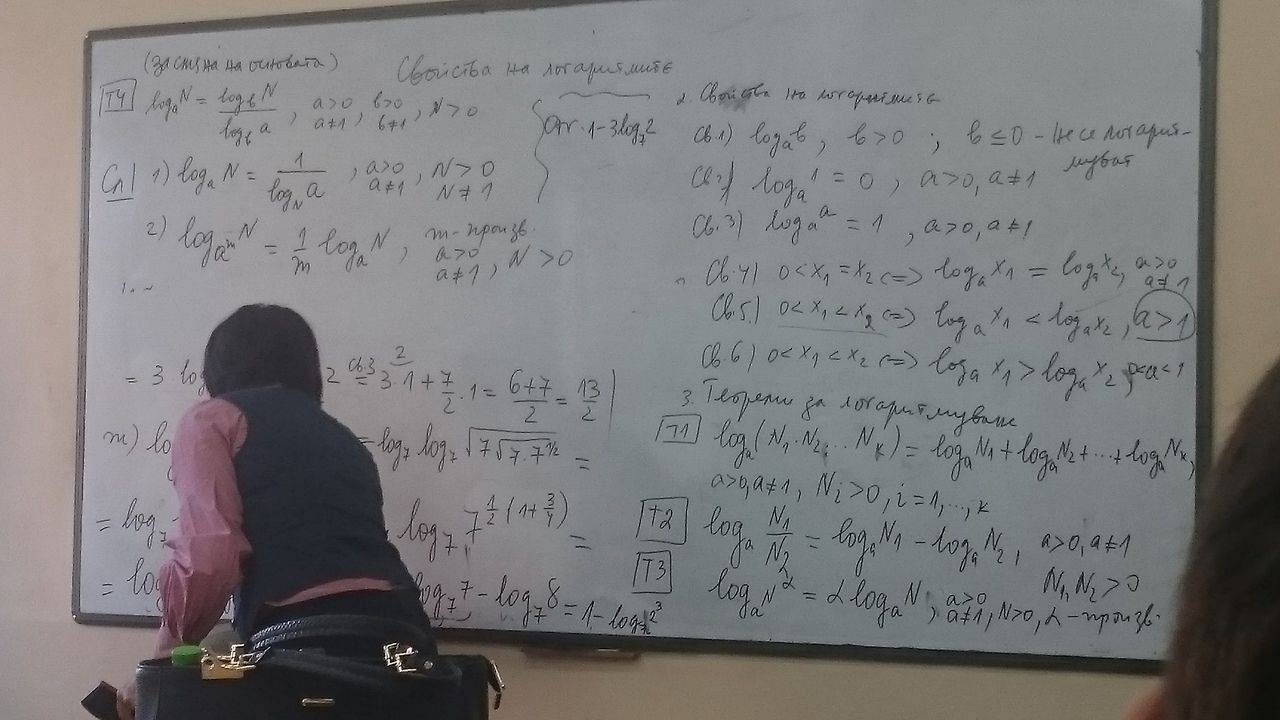 (За смяна на основата)
Свойства на логаритмите
T4 log_a N = log_b N / log_b a, a>0 a≠1, b>0 b≠1, N>0
Сл 1) log_a N = 1 / log_N a, a>0 a≠1, N>0 N≠1
2) log_{a^m} N = 1/m log_a N, m-произв. a>0 a≠1, N>0
Отг. 1-3log_7 2
= 3 log 2 =^{св.3} 3.1 + 7/2 .1 = (6+7)/2 = 13/2
m) lo = log_7 log_7 √(7√(7.7^{1/2})) =
= log_7 log_7 7^{1/2 (1+3/4)} =
= log log_7 7 - log_7 8 = 1 - log_7 2^3
2. Свойства на логаритмите
Св.1) log_a b, b>0 ; b≤0 - не се логарит-
муват
Св.2) log_a 1 = 0, a>0, a≠1
Св.3) log_a a = 1, a>0, a≠1
Св.4) 0<x_1=x_2 <=> log_a x_1 = log_a x_2, a>0 a≠1
Св.5) 0<x_1<x_2 <=> log_a x_1 < log_a x_2, a>1
Св.6) 0<x_1<x_2 <=> log_a x_1 > log_a x_2, 0<a<1
3. Теореми за логаритмуване
T1 log_a (N_1.N_2...N_k) = log_a N_1 + log_a N_2 + ... + log_a N_k,
a>0, a≠1, N_i>0, i=1,...,k
T2 log_a N_1/N_2 = log_a N_1 - log_a N_2, a>0, a≠1
N_1, N_2 > 0
T3 log_a N^α = α log_a N, a>0 a≠1, N>0, α-произв.